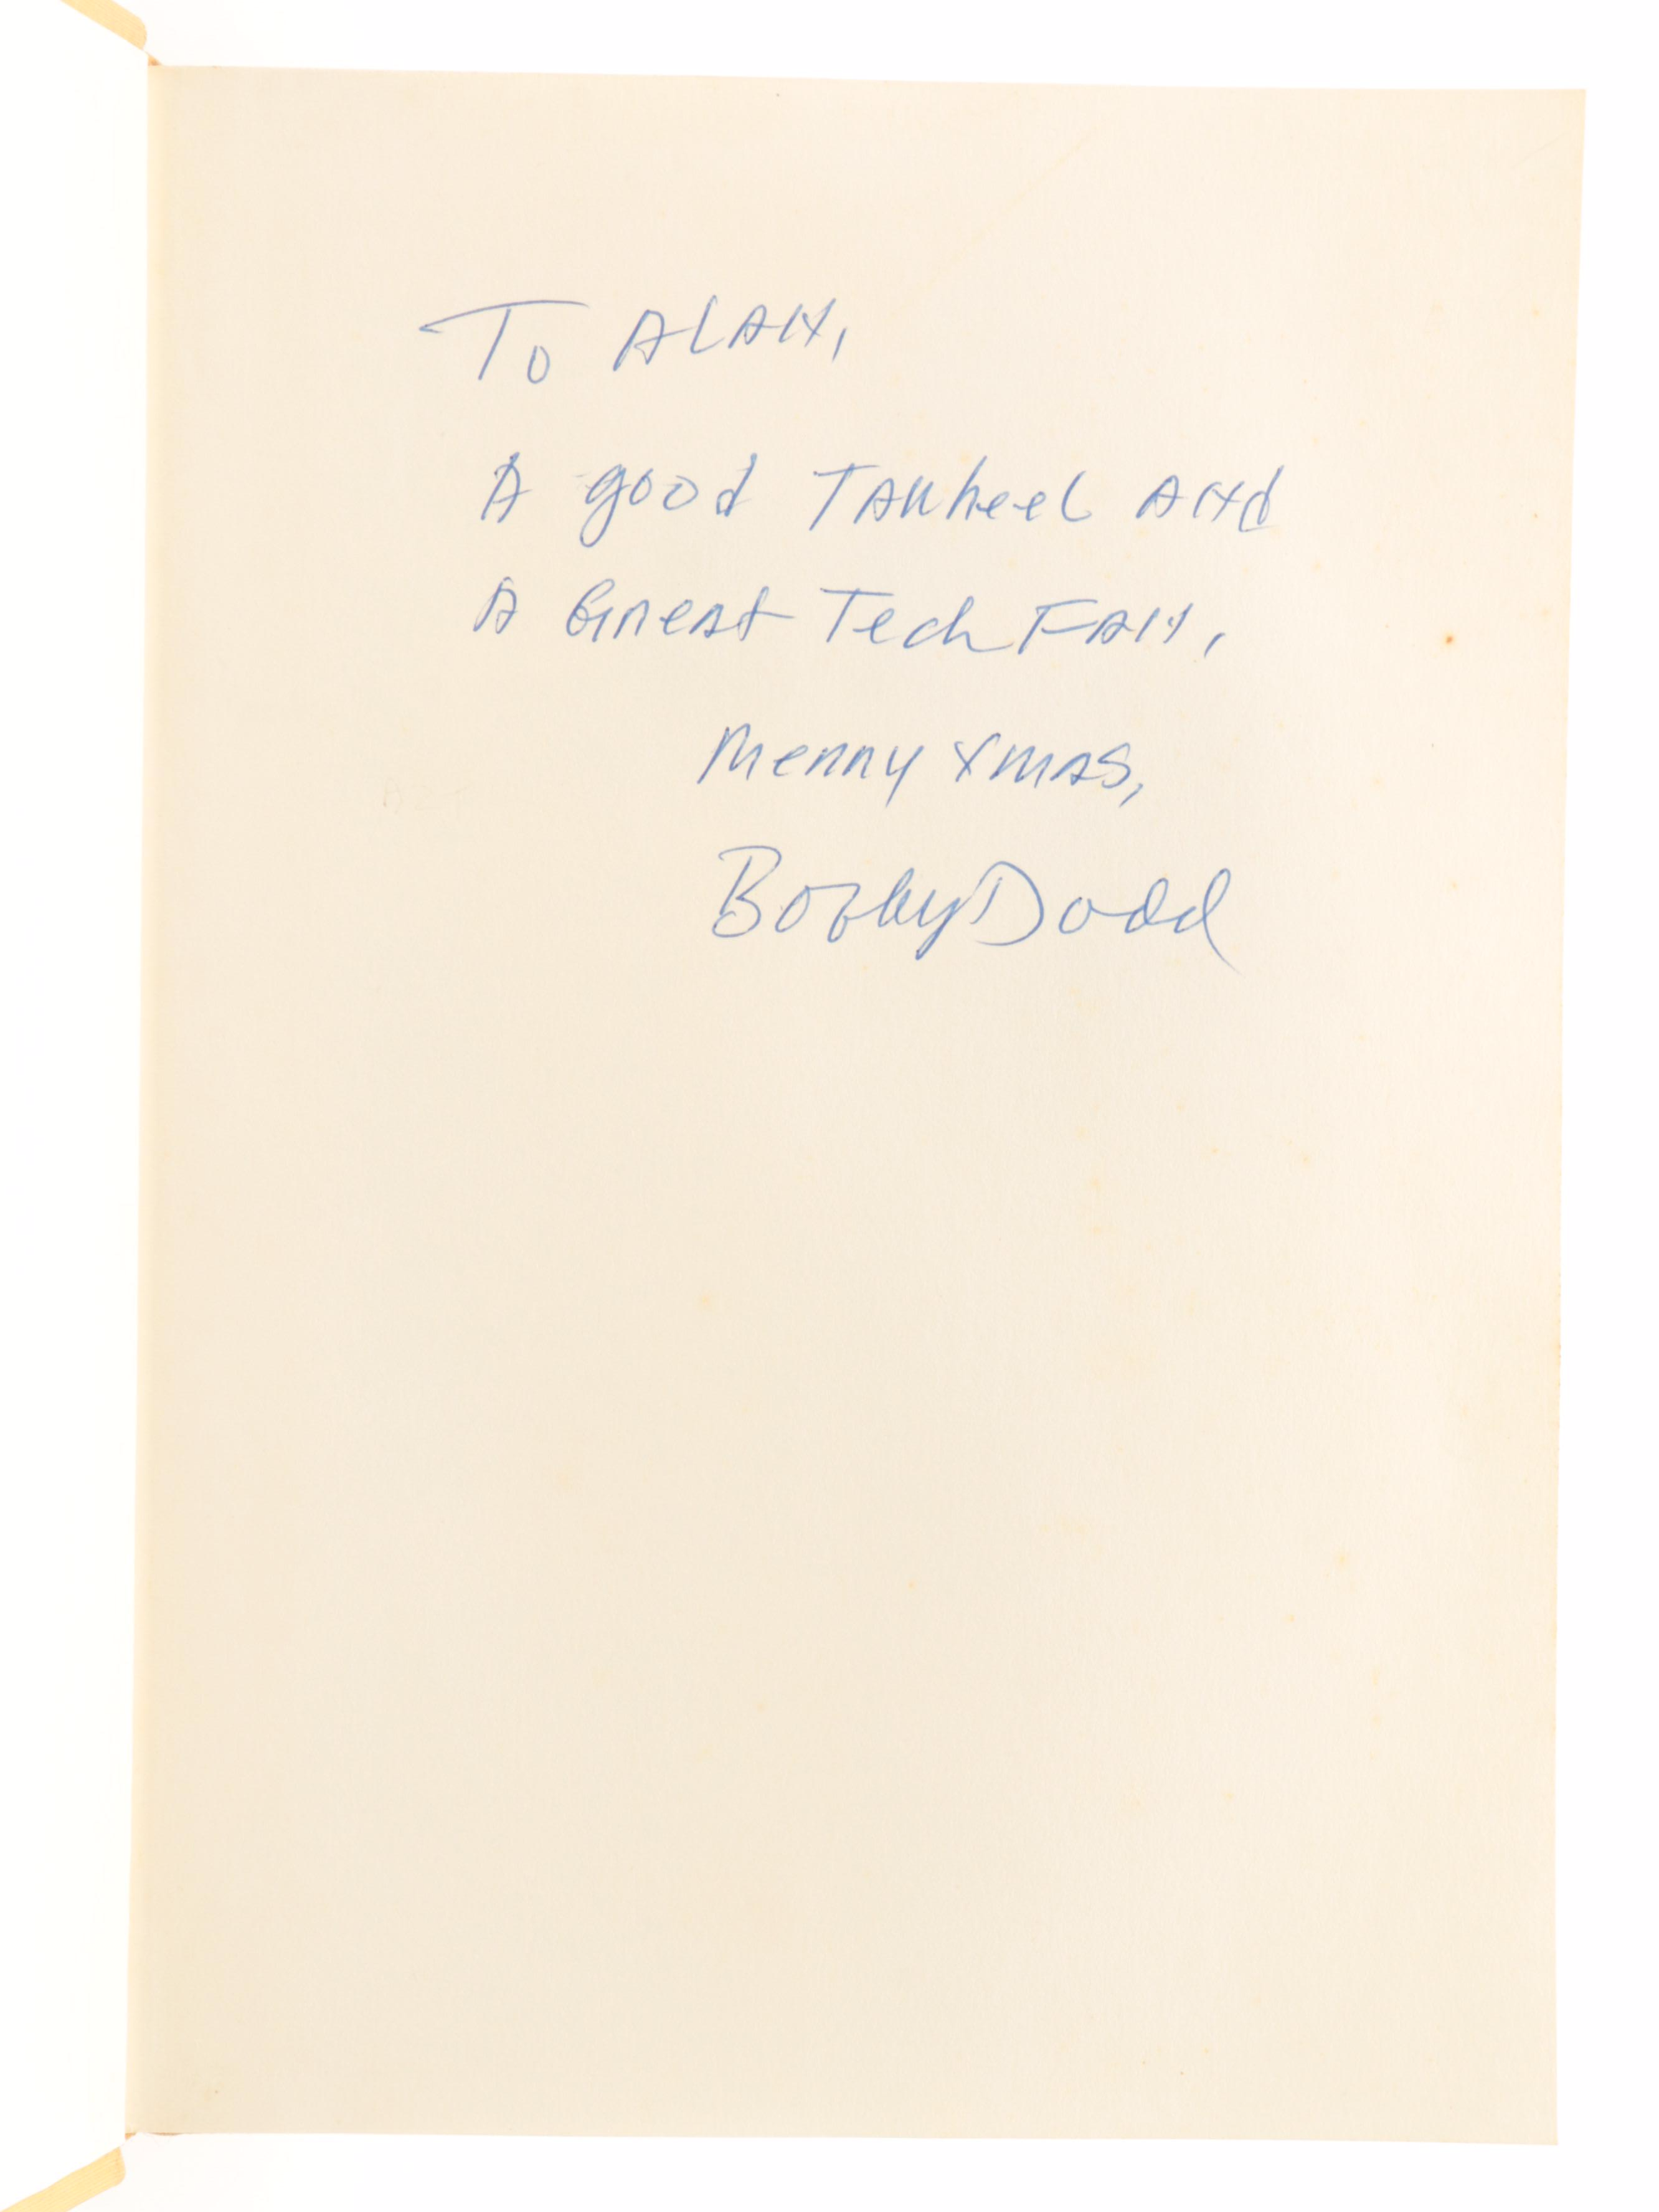 To ALAN,
A good TARheel ANd
A Great Tech FAN,
Merry Xmas,
Bobby Dodd